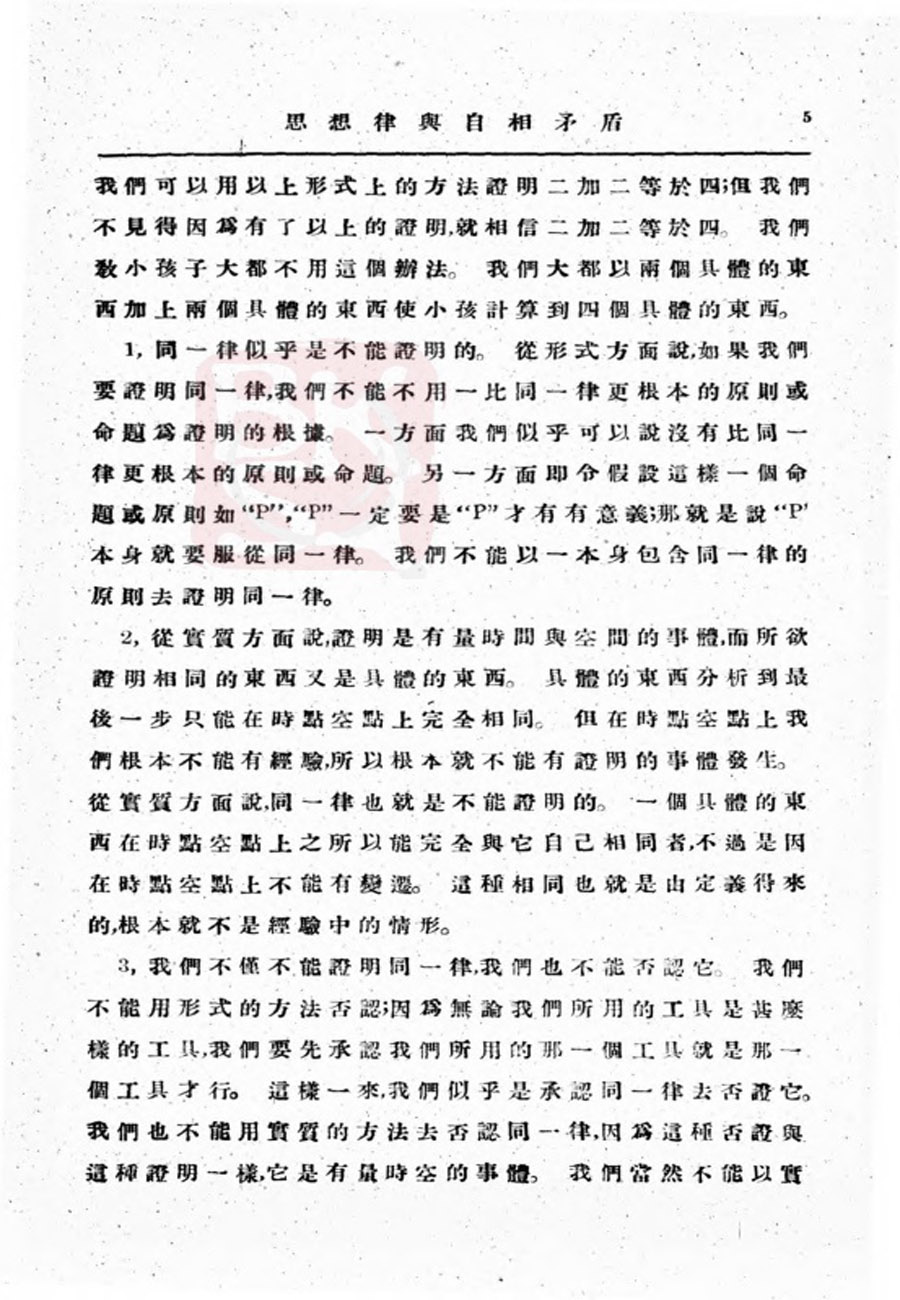 思想律與自相矛盾 5
我們可以用以上形式上的方法證明二加二等於四;但我們
不見得因爲有了以上的證明,就相信二加二等於四。 我們
敎小孩子大都不用這個辦法。 我們大都以兩個具體的東
西加上兩個具體的東西使小孩計算到四個具體的東西。
1, 同一律似乎是不能證明的。 從形式方面說,如果我們
要證明同一律,我們不能不用一比同一律更根本的原則或
命題爲證明的根據。 一方面我們似乎可以說沒有比同一
律更根本的原則或命題。 另一方面即令假設這樣一個命
題或原則如“P”,“P”一定要是“P”才有有意義;那就是說“P’
本身就要服從同一律。 我們不能以一本身包含同一律的
原則去證明同一律。
2, 從實質方面說,證明是有量時間與空間的事體,而所欲
證明相同的東西又是具體的東西。 具體的東西分析到最
後一步只能在時點空點上完全相同。 但在時點空點上我
們根本不能有經驗,所以根本就不能有證明的事體發生。
從實質方面說,同一律也就是不能證明的。 一個具體的東
西在時點空點上之所以能完全與它自己相同者,不過是因
在時點空點上不能有變遷。 這種相同也就是由定義得來
的,根本就不是經驗中的情形。
3, 我們不僅不能證明同一律,我們也不能否認它。 我們
不能用形式的方法否認;因爲無論我們所用的工具是甚麼
樣的工具,我們要先承認我們所用的那一個工具就是那一
個工具才行。 這樣一來,我們似乎是承認同一律去否證它。
我們也不能用實質的方法去否認同一律,因爲這種否證與
這種證明一樣,它是有量時空的事體。 我們當然不能以實